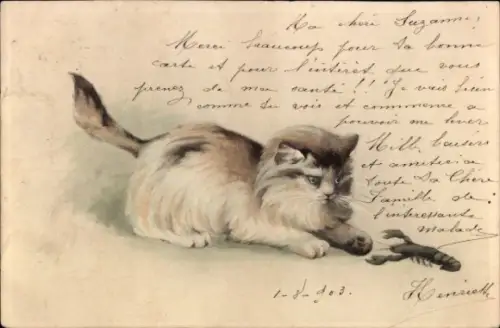 Ma chère Suzanne,
Merci beaucoup pour ta bonne
carte et pour l'intérêt que vous
prenez de ma santé!! Je vais bien
comme tu vois et commence à
pouvoir me lever
Mille baisers
et amitiés à
toute ta chère
famille de
l'intéressante
malade
Henriette
1-8-903.